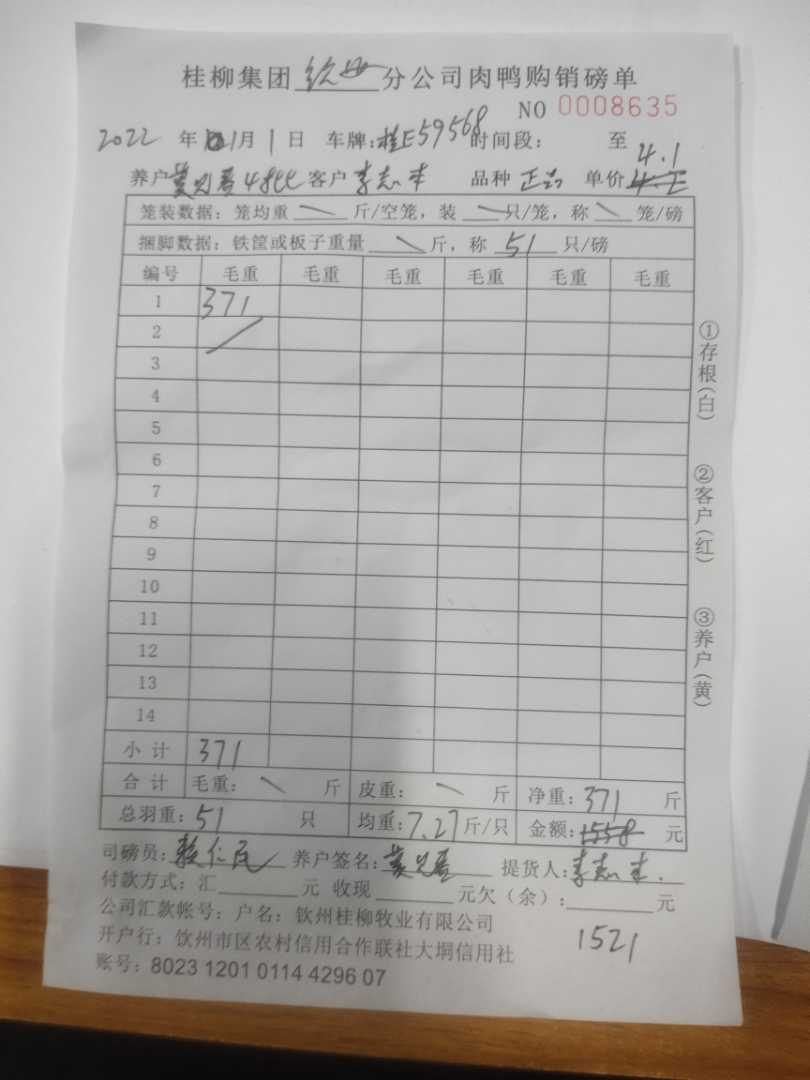 桂柳集团 钦州 分公司肉鸭购销磅单
NO 0008635
2022 年 1月 1 日 车牌:桂E59568 时间段: 至
养户 客户 李志丰 品种 正品 单价 4.1
笼装数据:笼均重 斤/空笼,装 只/笼,称 笼/磅
捆脚数据:铁筐或板子重量 斤,称 51 只/磅
编号 毛重 毛重 毛重 毛重 毛重 毛重
1 371
2
3
4
5
6
7
8
9
10
11
12
13
14
小计 371
合计 毛重: 斤 皮重: 斤 净重:371 斤
总羽重:51 只 均重:7.27斤/只 金额:1558 元
司磅员: 养户签名: 提货人:李志丰.
付款方式:汇 元 收现 元欠(余): 元
公司汇款帐号:户名:钦州桂柳牧业有限公司
1521
开户行:钦州市区农村信用合作联社大垌信用社
账号:8023 1201 0114 4296 07
①存根(白)
②客户(红)
③养户(黄)